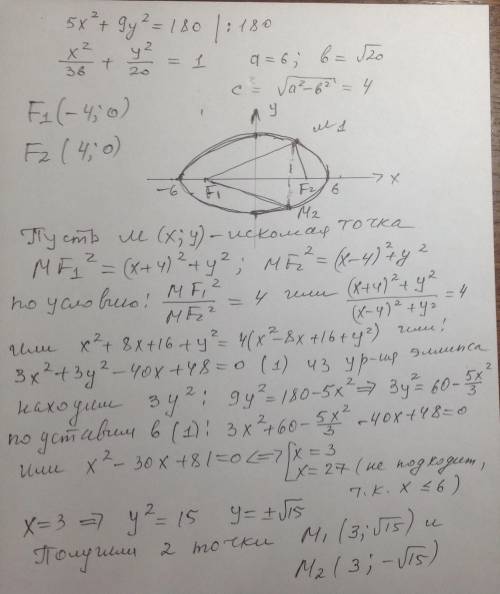 5x² + 9y² = 180 | : 180
x²/36 + y²/20 = 1    a = 6;  b = √20
c = √(a² - b²) = 4
F1 (-4; 0)
F2 (4; 0)
y
M1
-6 F1 F2 6 x
M2
Пусть M (x; y) - искомая точка
MF1² = (x+4)² + y²;  MF2² = (x-4)² + y²
по условию: MF1²/MF2² = 4 или ((x+4)² + y²)/((x-4)² + y²) = 4
или x² + 8x + 16 + y² = 4(x² - 8x + 16 + y²) или:
3x² + 3y² - 40x + 48 = 0 (1) из ур-ия эллипса
находим 3y²: 9y² = 180 - 5x² ⇒ 3y² = 60 - 5x²/3
подставим в (1): 3x² + 60 - 5x²/3 - 40x + 48 = 0
или x² - 30x + 81 = 0 <=> [x = 3
x = 27 (не подходит,
т.к. x ≤ 6)
x = 3 ⇒ y² = 15  y = ±√15
Получили 2 точки M1 (3; √15) и
M2 (3; -√15)